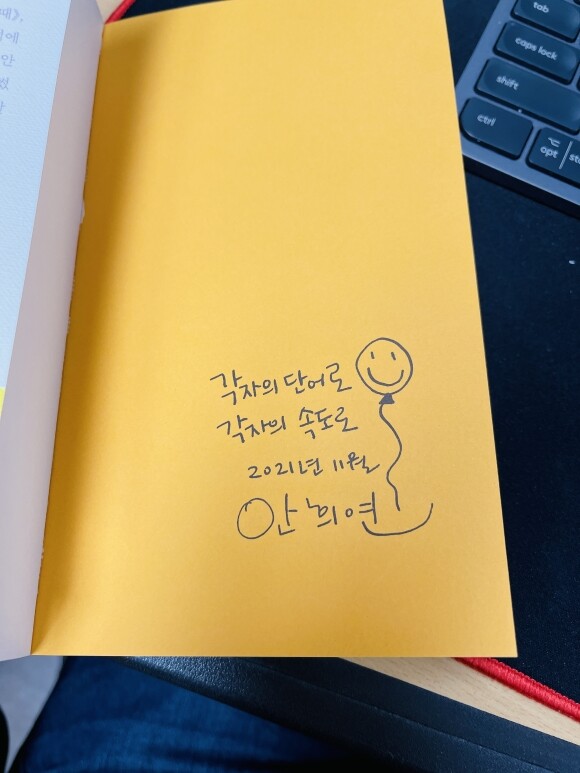 각자의 단어로
각자의 속도로
2021년 11월
안희연
때》,
tab
caps lock
shift
ctrl
opt